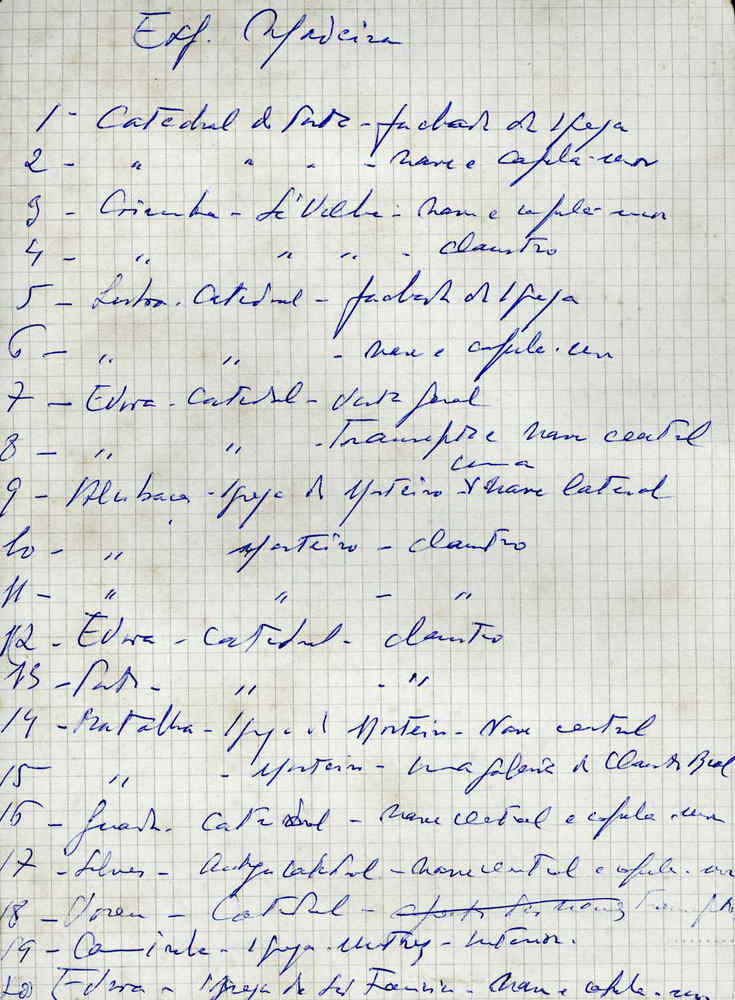 Exp. Madeira
1 - Catedral do Porto - fachada da Igreja
2 - " " " - nave e capela-mor
3 - Coimbra - Sé Velha - nave e capela-mor
4 - " " " - claustro
5 - Lisboa - Catedral - fachada da Igreja
6 - " " - nave e capela-mor
7 - Évora - Catedral - vista geral
8 - " " - Transepto e nave central
uma
9 - Alcobaça - Igreja do Mosteiro - nave lateral
10 - " Mosteiro - claustro
11 - " " - "
12 - Évora - Catedral - claustro
13 - Porto - " - "
14 - Batalha - Igreja do Mosteiro - Nave central
15 " - Mosteiro - uma galeria do Claustro Real
16 - Guarda - Catedral - nave central e capela-mor
17 - Silves - Antiga catedral - nave central e capela-mor
18 - - Catedral -
19 - Caminha - Igreja Matriz - interior.
20 Évora - Igreja de São Francisco - nave e capela-mor